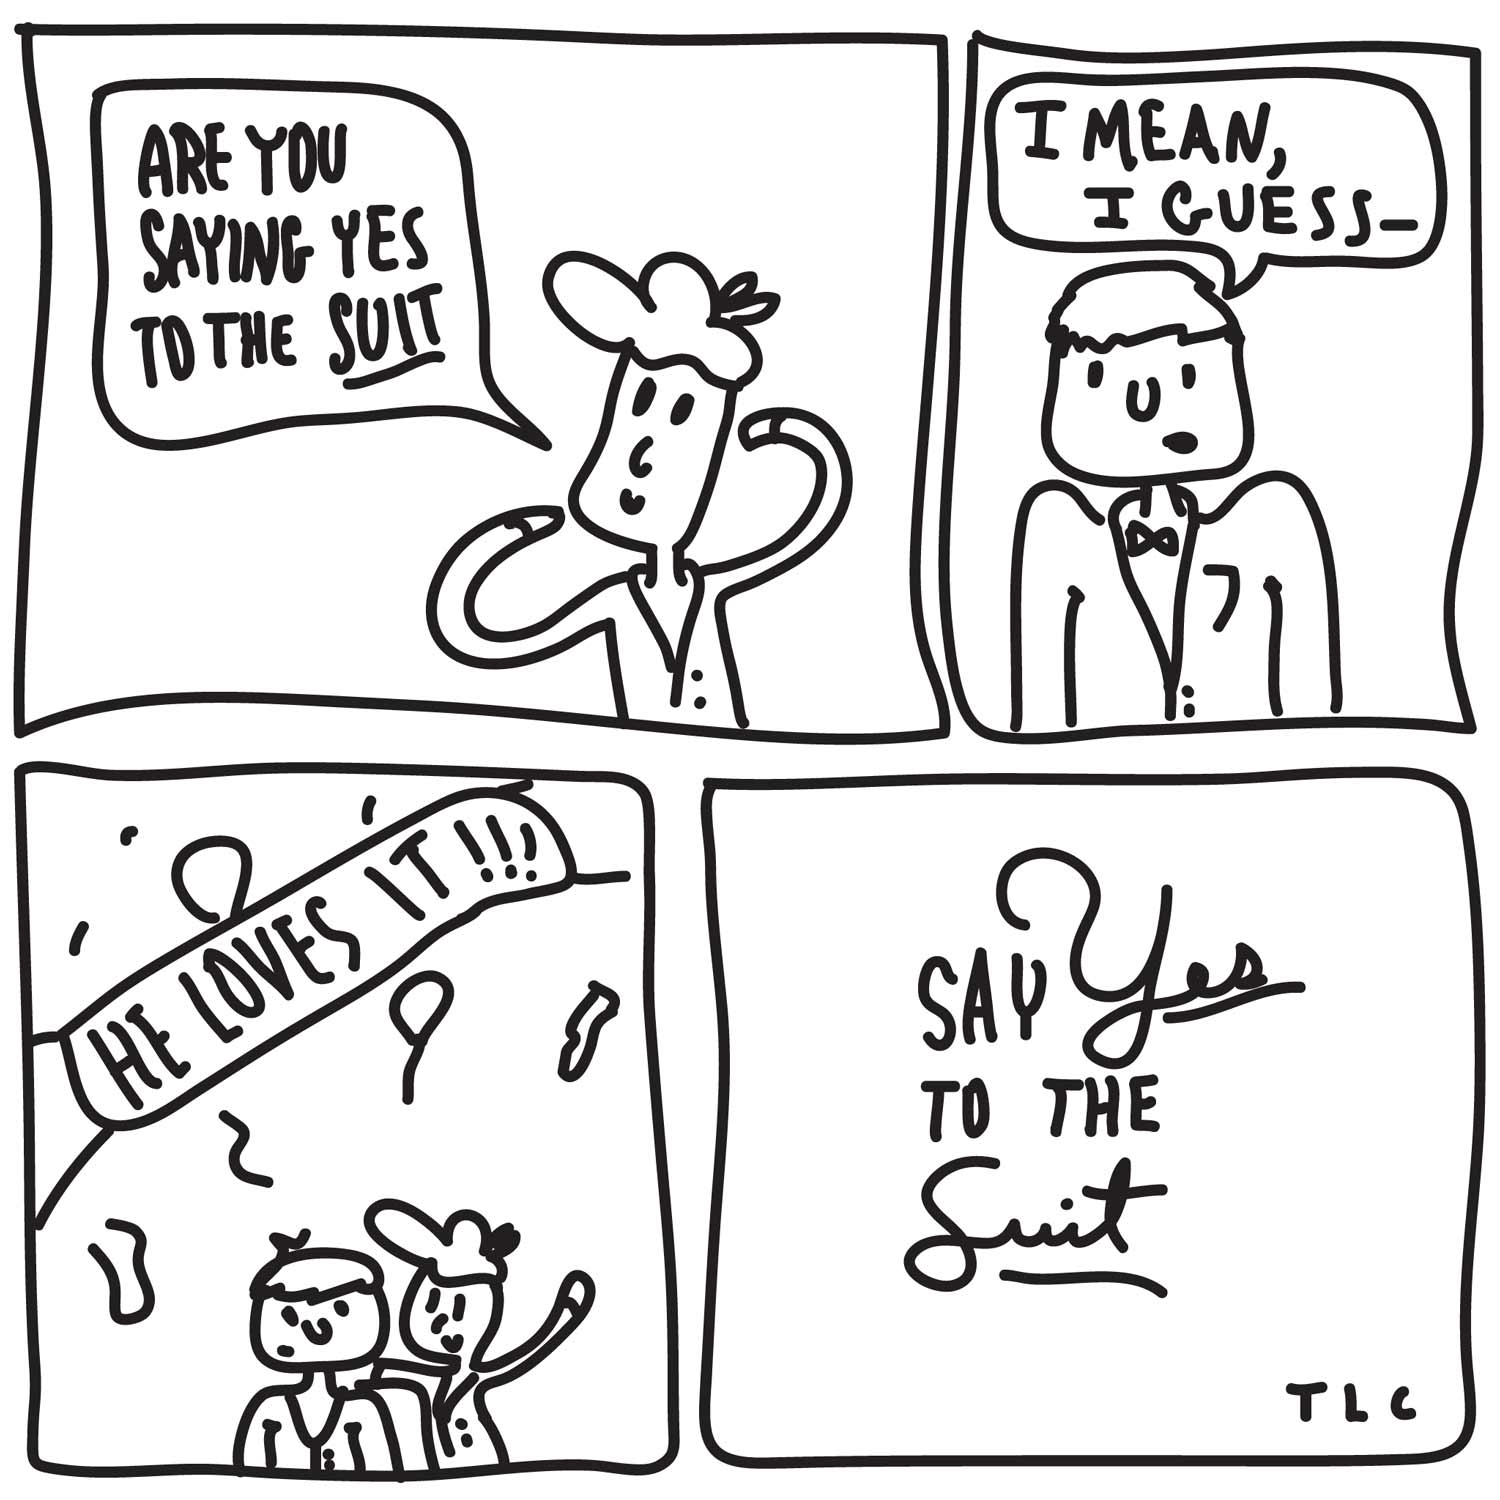 ARE YOU
SAYING YES
TO THE SUIT
I MEAN,
I GUESS—
HE LOVES IT!!!
SAY Yes
TO THE
Suit
TLC